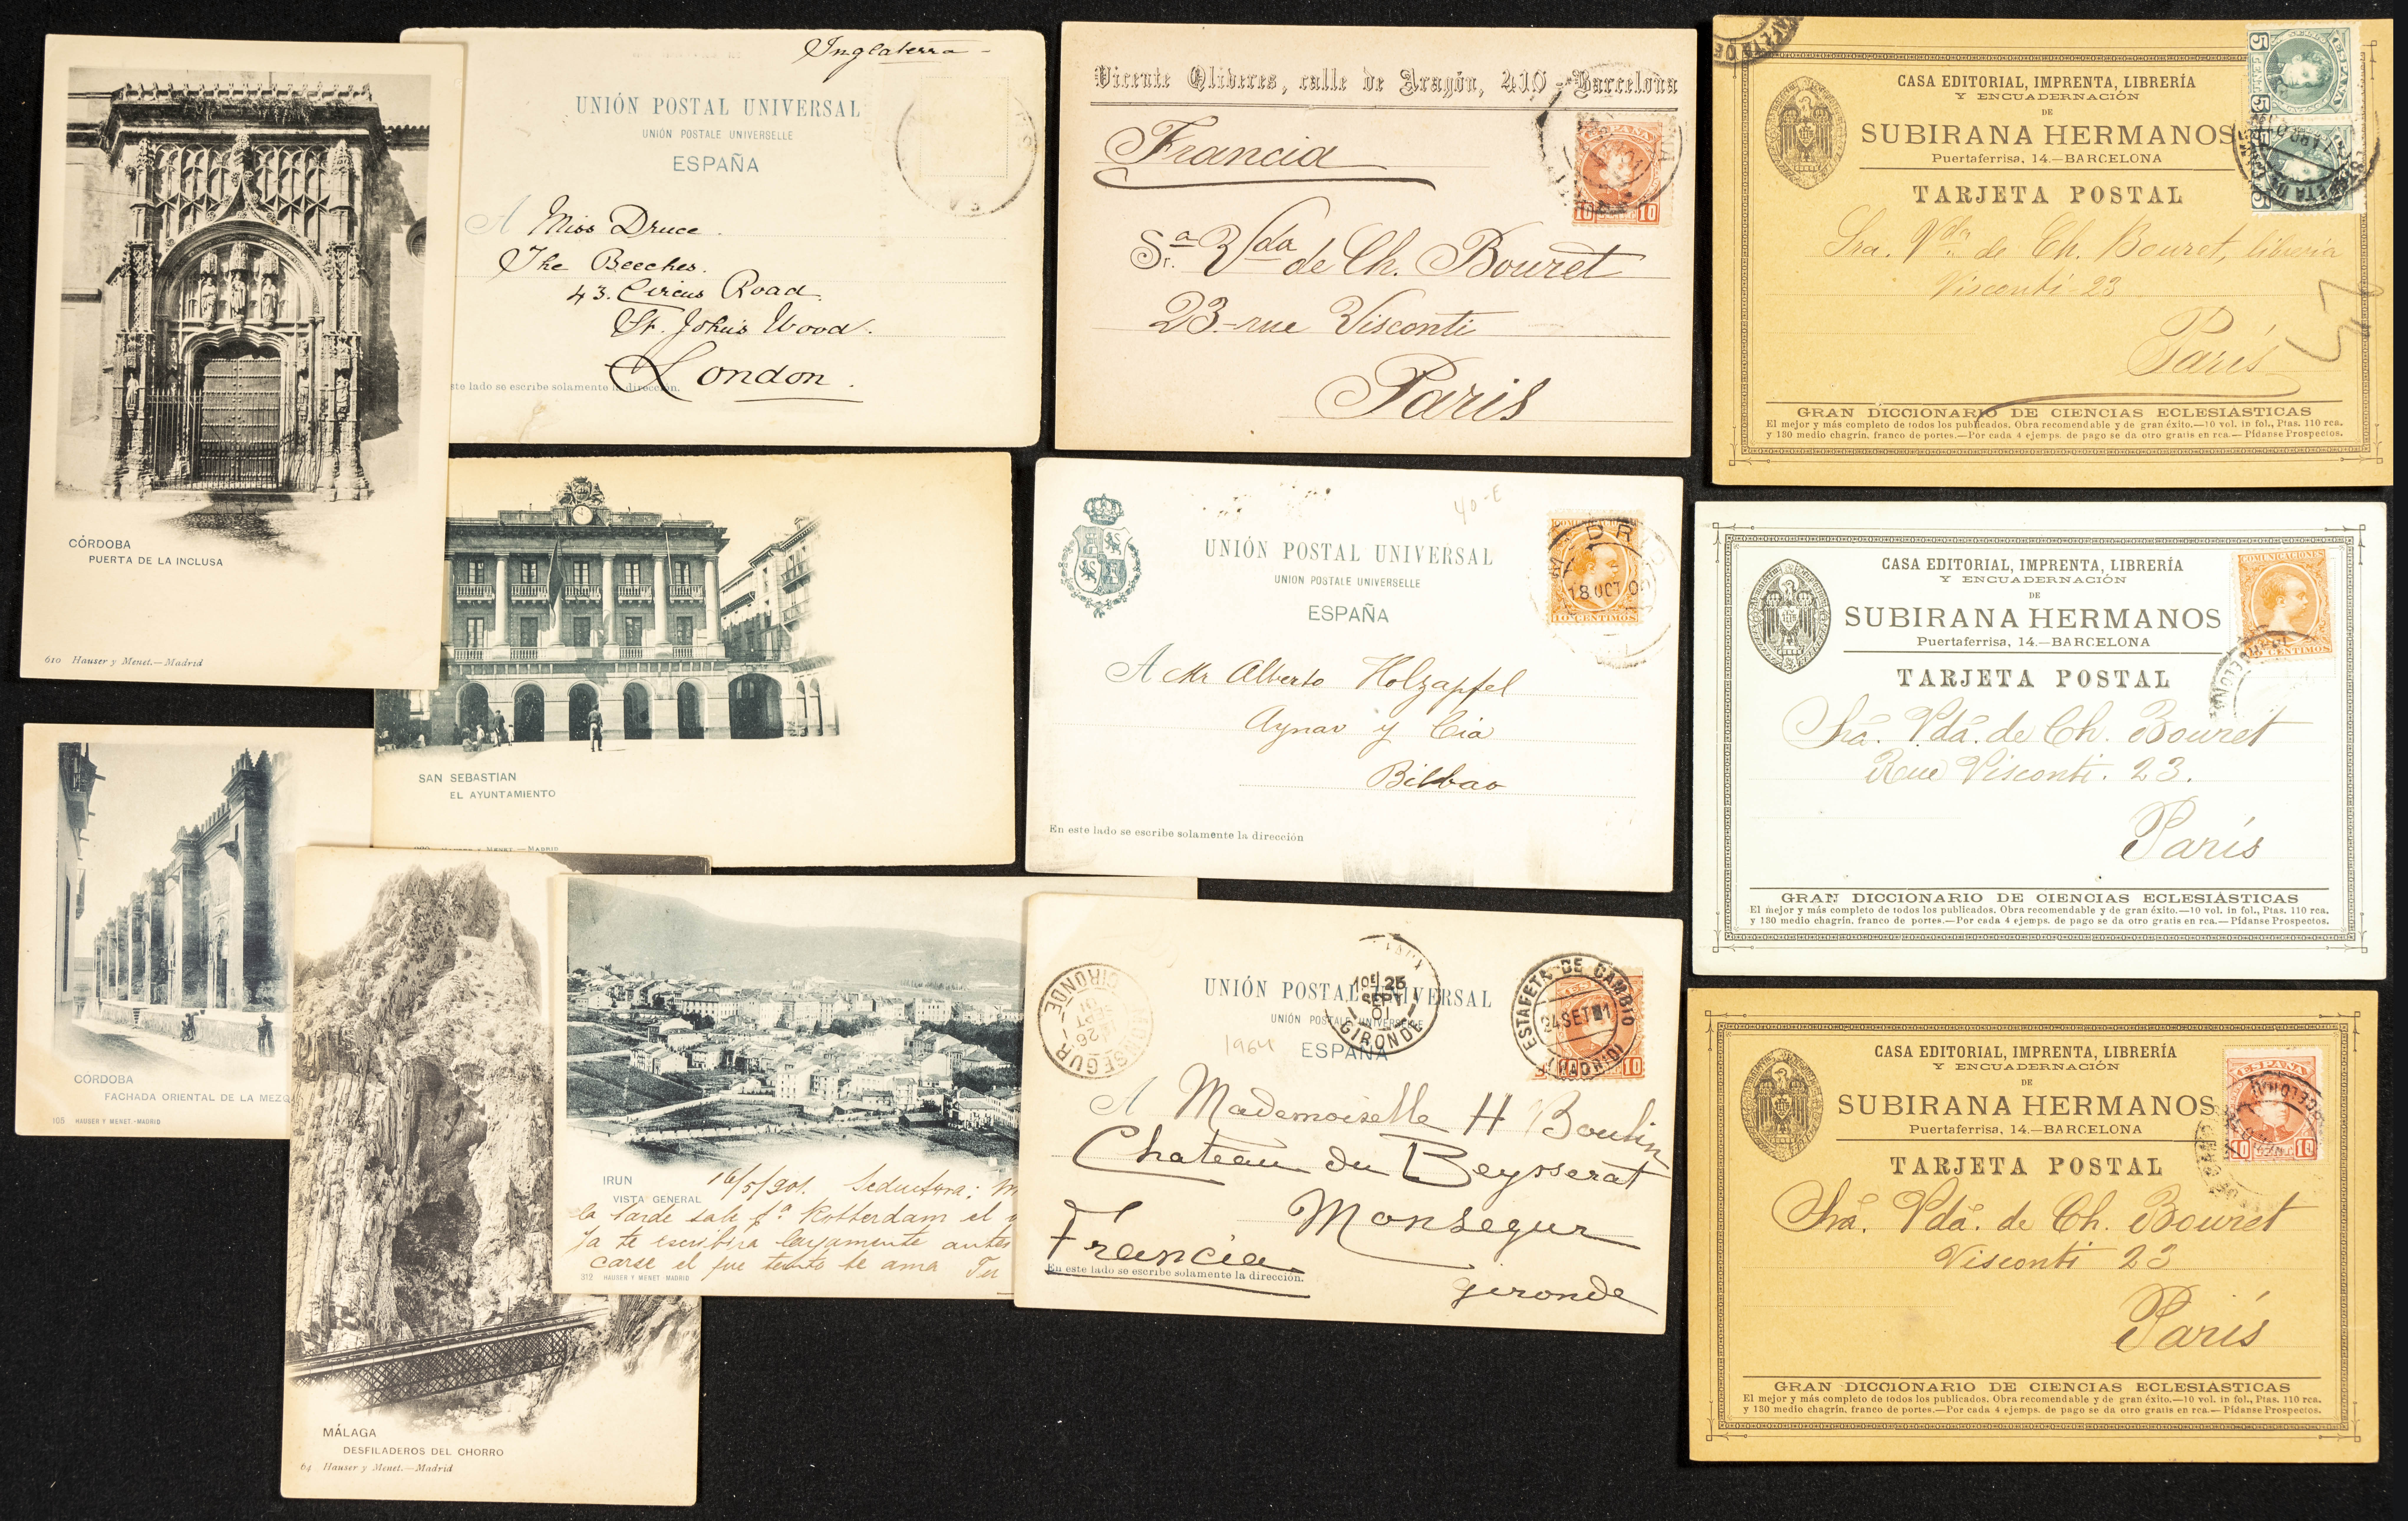 CÓRDOBA
PUERTA DE LA INCLUSA
610 Hauser y Menet.—Madrid
Inglaterra -
UNIÓN POSTAL UNIVERSAL
UNIÓN POSTALE UNIVERSELLE
ESPAÑA
A Miss Druce.
The Beeches.
43. Circus Road.
St. John's Wood.
London.
ste lado se escribe solamente la dirección.
Vicente Oliveres, calle de Aragón, 410 - Barcelona
Francia
ESPAÑA
10 10
Sra. Vda de Ch. Bouret
23-rue Visconti
Paris
ESPAÑA
5 CENT. 5
CASA EDITORIAL, IMPRENTA, LIBRERÍA
Y ENCUADERNACIÓN
DE
SUBIRANA HERMANOS
Puertaferrisa, 14.—BARCELONA
TARJETA POSTAL
Sra. Vda. de Ch. Bouret, librería
Visconti-23
París
GRAN DICCIONARIO DE CIENCIAS ECLESIÁSTICAS
El mejor y más completo de todos los publicados. Obra recomendable y de gran éxito.—10 vol. in fol., Ptas. 110 rca.
y 130 medio chagrin, franco de portes.—Por cada 4 ejemps. de pago se da otro gratis en rca.—Pídanse Prospectos.
SAN SEBASTIAN
EL AYUNTAMIENTO
HAUSER Y MENET.—MADRID
40-E
UNIÓN POSTAL UNIVERSAL
UNIÓN POSTALE UNIVERSELLE
ESPAÑA
COMUNICACIONES
18 OCT 00
10 CENTIMOS
A Mr Alberto Holzapfel
Aynar y Cia
Bilbao
En este lado se escribe solamente la dirección
CASA EDITORIAL, IMPRENTA, LIBRERÍA
Y ENCUADERNACIÓN
DE
SUBIRANA HERMANOS
Puertaferrisa, 14.—BARCELONA
TARJETA POSTAL
COMUNICACIONES
CENTIMOS
Sra. Vda. de Ch. Bouret
Rue Visconti. 23.
París
GRAN DICCIONARIO DE CIENCIAS ECLESIÁSTICAS
El mejor y más completo de todos los publicados. Obra recomendable y de gran éxito.—10 vol. in fol., Ptas. 110 rca.
y 130 medio chagrin, franco de portes.—Por cada 4 ejemps. de pago se da otro gratis en rca.—Pídanse Prospectos.
CÓRDOBA
FACHADA ORIENTAL DE LA MEZQ
105 HAUSER Y MENET.-MADRID
MÁLAGA
DESFILADEROS DEL CHORRO
64 Hauser y Menet.—Madrid
IRUN
VISTA GENERAL
16/5/901. Seductora:
la tarde sale pa. Rotterdam el
Ya te escribira largamente antes
carse el que tanto te ama Tu
312 HAUSER Y MENET MADRID
UNIÓN POSTAL UNIVERSAL
UNIÓN POSTALE UNIVERSELLE
ESPAÑA
1964
MONSEGUR
GIRONDE
26 SEPT 01
1E 25
SEPT
01
GIRONDE
ESTAFETA DE CAMBIO
24 SET 01
(MADRID)
10
A Mademoiselle H Boulin
Chateau du Beysserat
Monsegur
Francia
gironde
En este lado se escribe solamente la dirección.
CASA EDITORIAL, IMPRENTA, LIBRERÍA
Y ENCUADERNACIÓN
DE
SUBIRANA HERMANOS
Puertaferrisa, 14.—BARCELONA
TARJETA POSTAL
ESPAÑA
10 CENT. 10
Sra. Vda. de Ch. Bouret
Visconti 23
París
GRAN DICCIONARIO DE CIENCIAS ECLESIÁSTICAS
El mejor y más completo de todos los publicados. Obra recomendable y de gran éxito.—10 vol. in fol., Ptas. 110 rca.
y 130 medio chagrin, franco de portes.—Por cada 4 ejemps. de pago se da otro gratis en rca.—Pídanse Prospectos.